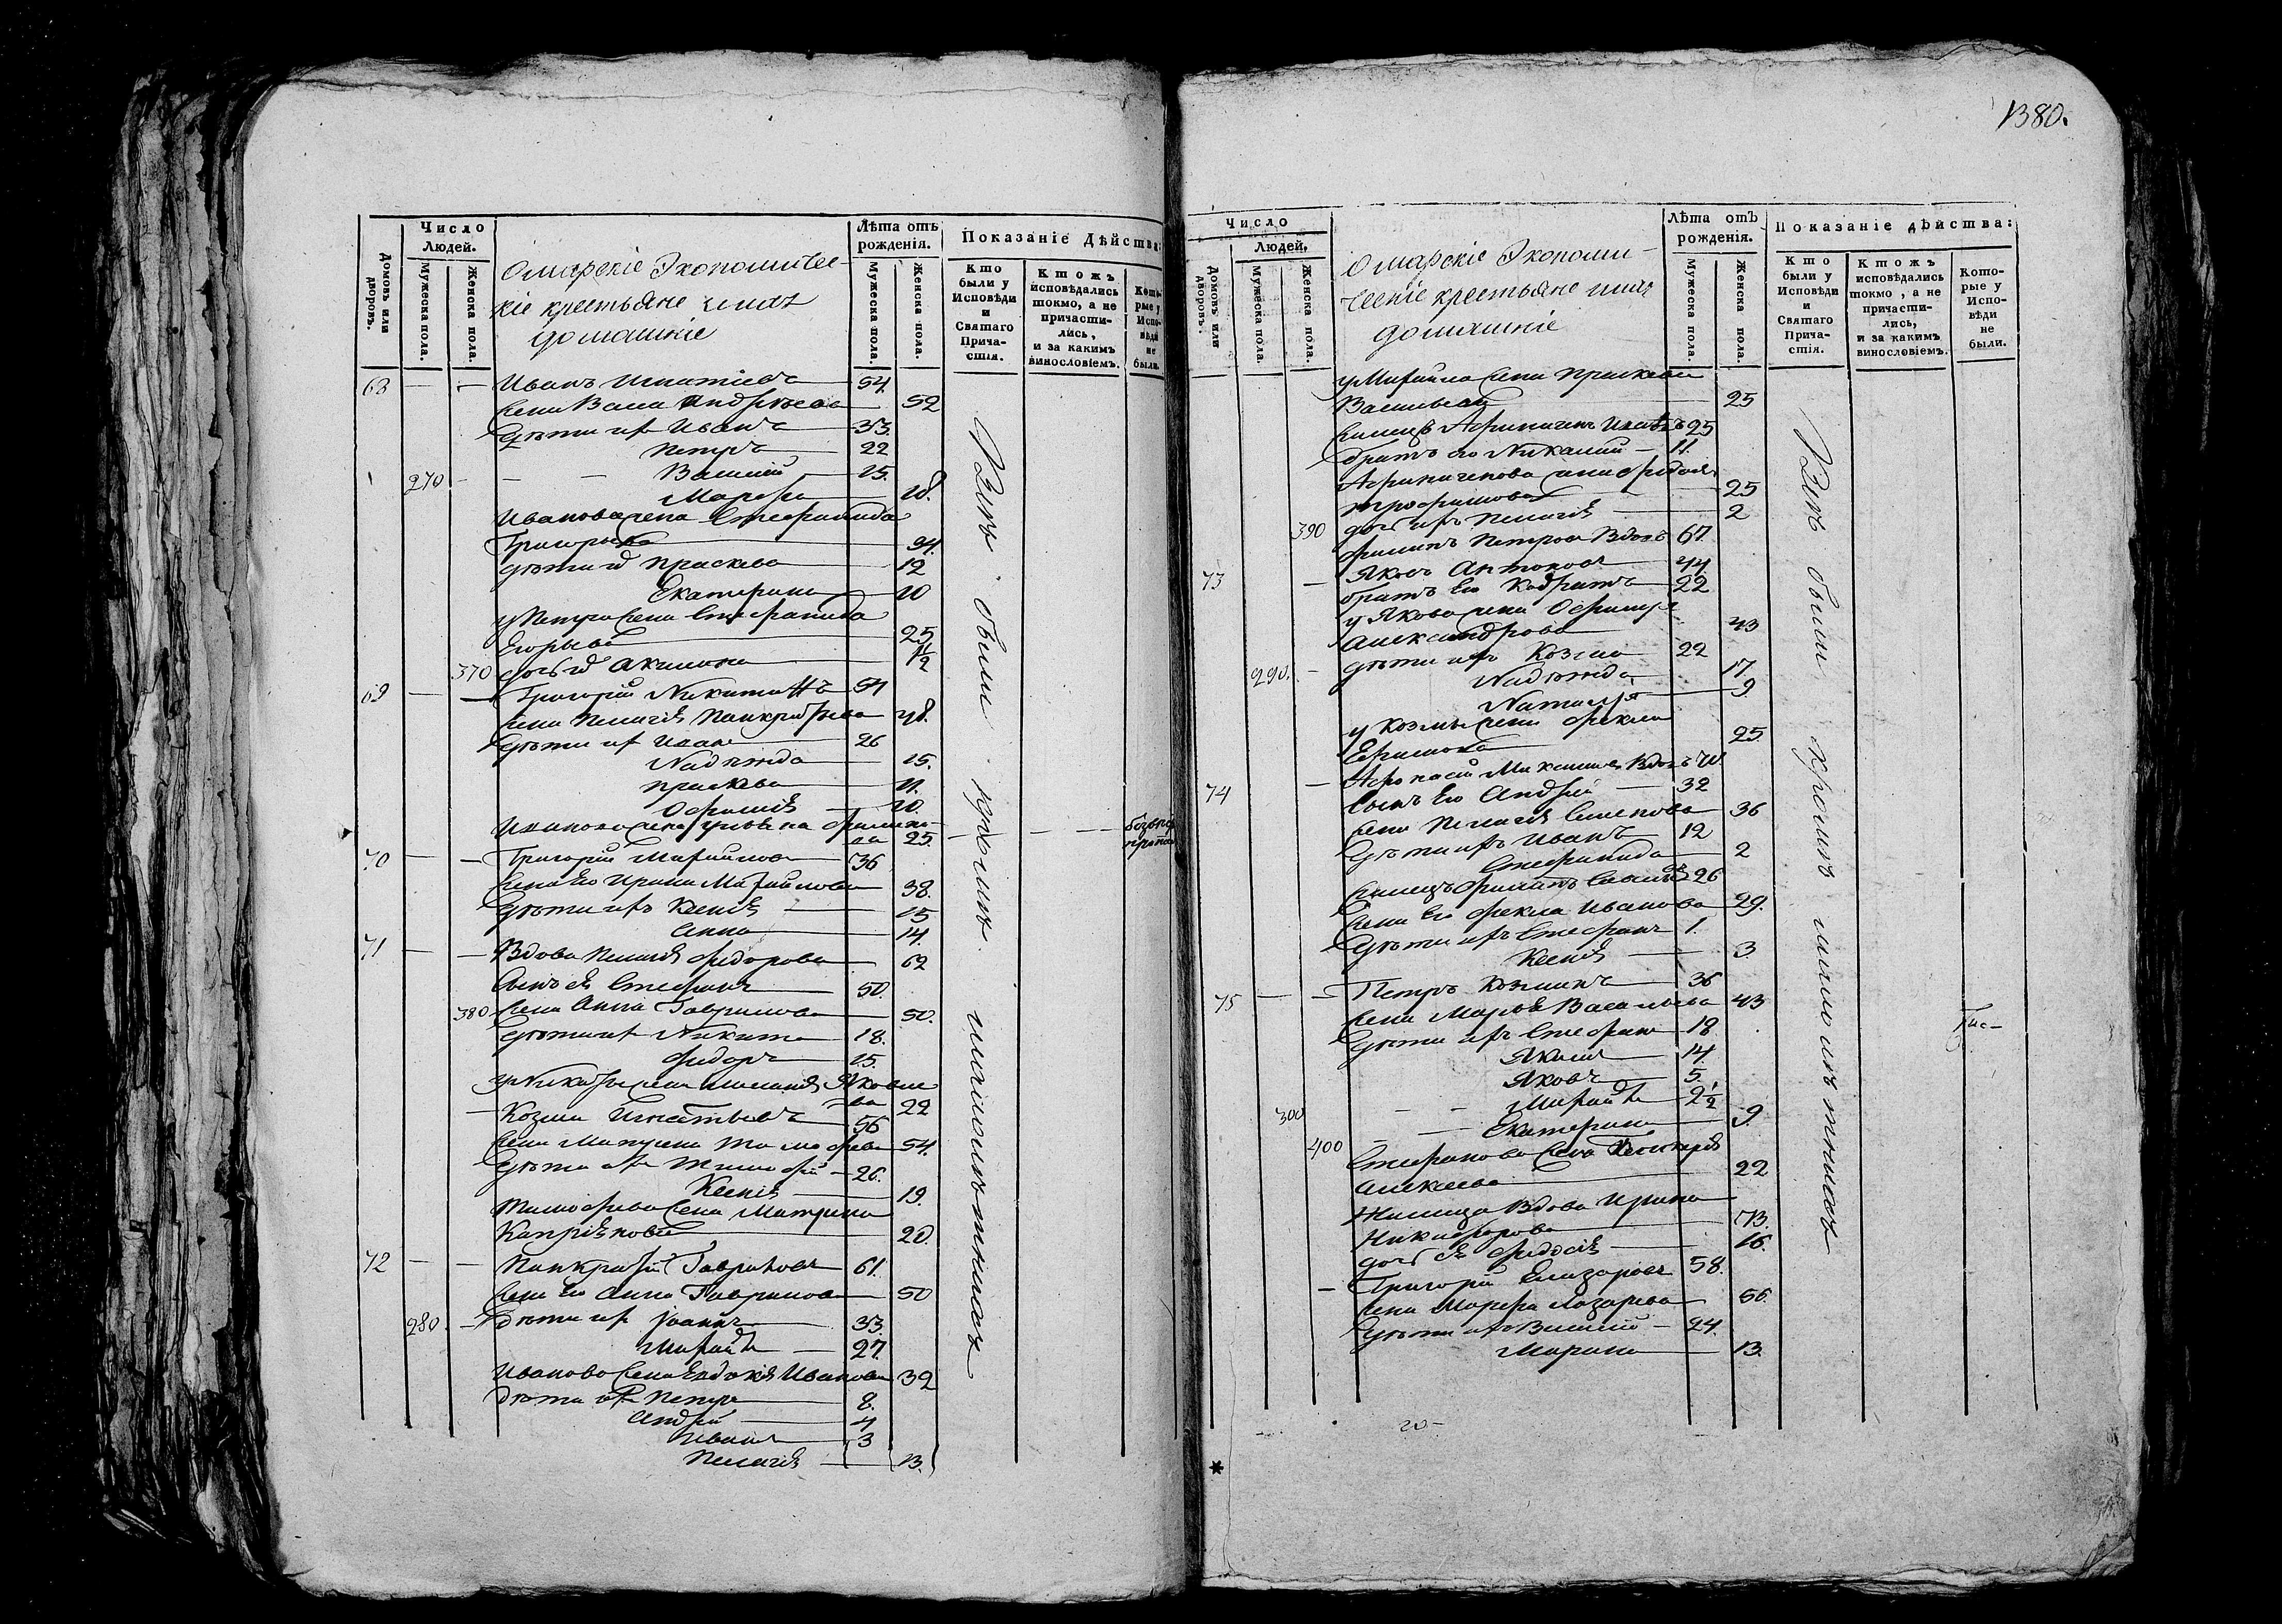 Домовъ или дворовъ.
Число
Людей.
Мужеска пола.
Женска пола.
Омарскіе Экономичес-
кіе крестьяне и ихъ
домашніе
Лѣта отъ
рожденія.
Мужеска пола.
Женска пола.
Показаніе Дѣйства:
Кто
были у
Исповѣди
и
Святаго
Прича-
стія.
Ктожъ
исповѣдались
токмо, а не
причасти-
лись,
и за какимъ
винословіемъ.
Кото-
рые у
Испо-
вѣди
не
были.
68 Иванъ Игнатіевъ 54
жена Васса Андрѣева 52
дѣти их Иванъ 33.
Петръ 22
270 Василий 15.
Марфа 18.
Иванова жена Стефанида
Григорьева 34.
дѣти их Праскева 12
Екатерина 10
у Петра жена Стефанида
Егорьва 25
370 дочь их Акилина 1/2
69 Григорій Никитинъ 54
жена Пелагія Панкратьева 48.
дѣти их Иван 26
Надѣжда 15.
Праскева 11.
Офимія 10.
Иванова жена Филипо-
ва 25.
70 Григорій Михайлов 36
жена Его Ирина Михайлова 38.
дѣти ихъ Ксенія 15
Анна 14.
71 Вдова Пелагія Федорова 62
сынъ ея Стефанъ 50.
380 жена Анна Гаврилова 50.
дѣти их Никита 18.
Федоръ 15.
у Никиты жена Меланія Яковле
ва 22
Козма Игнатьевъ 56
жена Матрена Тимофева 54.
дѣти их Тимофей 26.
Ксенія 19.
Тимофева жена Матрена
20.
72 Панкратій Гавриловъ 61.
жена Его Анна Гаврилова 50
280 дѣти их Іоаннъ 33.
Михайла 27.
Иванова жена Евдокія Иванова 32
дѣти их Петръ 8.
Андрей 4
Иванъ 3
Пелагія 13.
Всѣ были кромѣ малолѣтныхъ
1380.
Домовъ или дворовъ.
Число
Людей.
Мужеска пола.
Женска пола.
Омарскіе Экономи-
ческіе крестьяне и ихъ
домашніе
Лѣта отъ
рожденія.
Мужеска пола.
Женска пола.
Показаніе дѣйства:
Кто
были у
Исповѣди
и
Святаго
Прича-
стія.
Ктожъ
исповѣдались
токмо, а не
причасти-
лись,
и за какимъ
винословіемъ.
Кото-
рые у
Испо-
вѣди
не
были.
у Михайла жена Праскева
Васильева 25
25
братъ его 11.
Трофимова 25
390 дочь ихъ Пелагія 2
Филипъ Петров Вдовъ 67
73 Яковъ Антонов 44
братъ Его Кодратъ 22
у Якова жена Офимия
Александрова 43
290. дѣти ихъ Козма 22
Надѣжда 17
Наталья 9.
у Козмы жена Фекла
Ефимова 25.
74 Афонасій Максимов Вдовъ 70
сынъ Его Андрей 32
жена Пелагія Семенова 36
дѣти ихъ Иванъ 12
Стефанида 2
Филипъ 26
жена Его Фекла Иванова 29.
дѣти ихъ Стефанъ 1.
Ксенія 3
75 Петръ Козминъ 36
жена Марья Васильева 43
дѣти ихъ Стефанъ 18
Якимъ 14.
Яковъ 5.
300 Михайла 2 1/2
Екатерина 9.
400 Стефанова жена
Алексеева 22
Жилица Вдова Ирина
Никифорова 73.
дочь ея Федосія 16.
Григорій Елизаровъ 58.
жена Марфа Лазарева 56.
дѣти ихъ Василий 24.
Марина 13.
Всѣ были кромѣ малолѣтныхъ